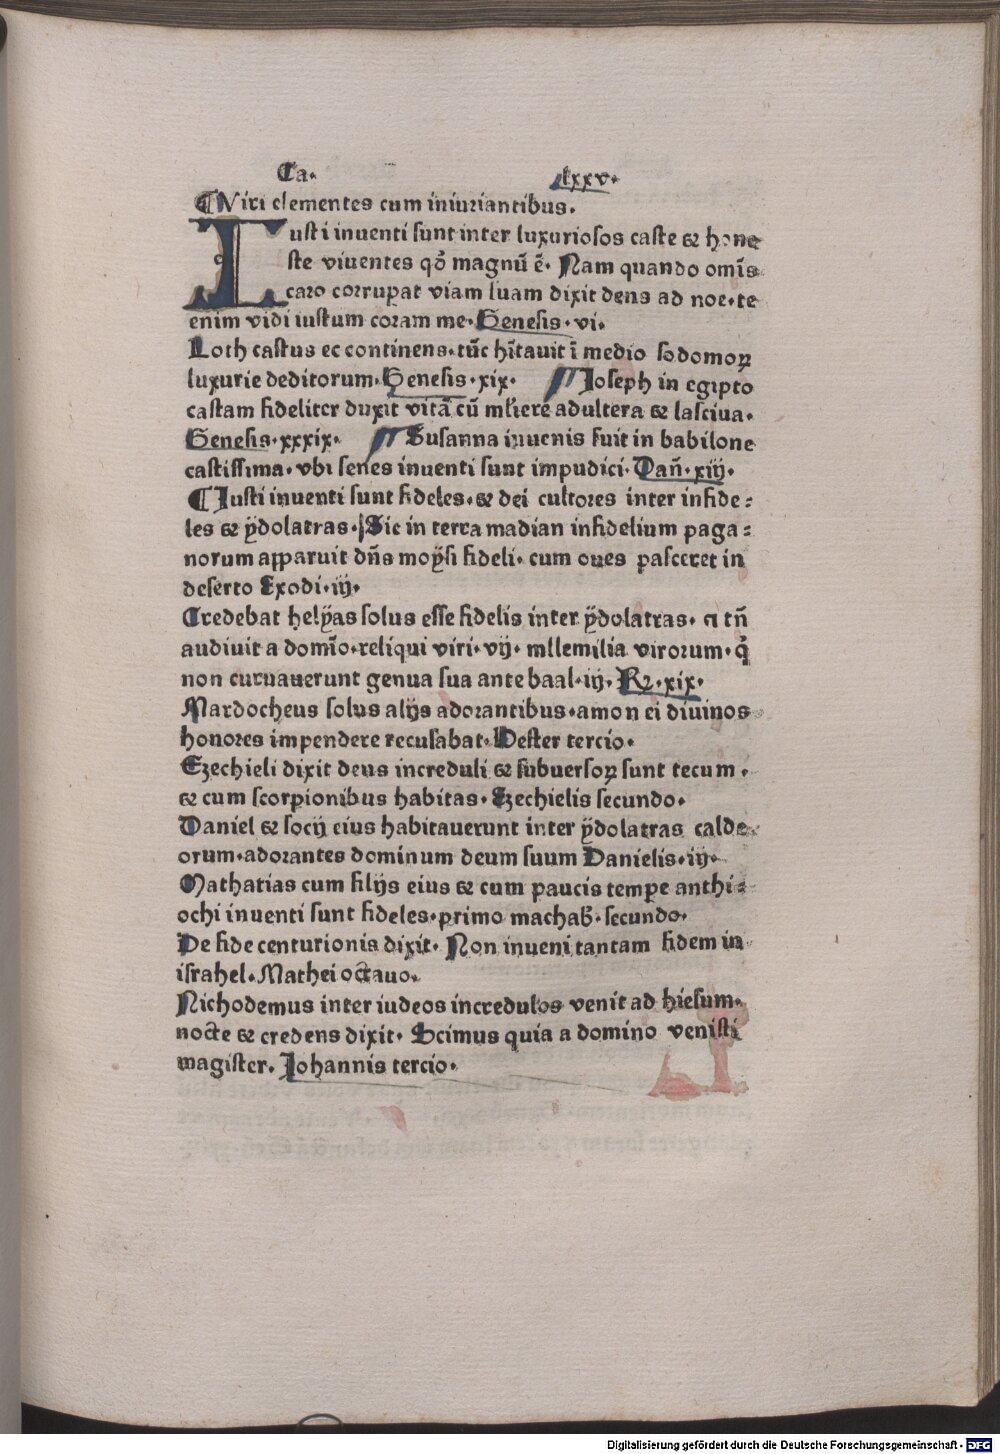 Ca. lxxv.
¶ Viri clementes cum iniuriantibus.
Iusti inuenti sunt inter luxuriosos caste ⁊ hone
ste viuentes qđ magnū ē. Nam quando omīs
caro corrupat viam suam dixit deus ad noe. te
enim vidi iustum coram me. Genesis. vi.
Loth castus et continens. tūc hītauit ī medio sodomoꝝ
luxurie deditorum. Genesis. xix. ¶ Joseph in egipto
castam fideliter duxit vitā cū mliere adultera ⁊ lasciua.
Genesis. xxxix. ¶ Susanna iuuenis fuit in babilone
castissima. vbi senes inuenti sunt impudici. Dañ. xiij.
¶ Justi inuenti sunt fideles. ⁊ dei cultores inter infide=
les ⁊ ÿdolatras. Sic in terra madian infidelium paga=
norum apparuit dñs moÿsi fideli. cum oues pasceret in
deserto Exodi. iij.
Credebat helÿas solus esse fidelis inter ÿdolatras. ci tñ
audiuit a domīo. reliqui viri. vij. mllemilia virorum. q̄
non curuauerunt genua sua ante baal. iij. Rꝝ. xix.
Mardocheus solus alijs adorantibus. amon ei diuinos
honores impendere recusabat. Hester tercio.
Ezechieli dixit deus increduli ⁊ subuersoꝝ sunt tecum.
⁊ cum scorpionibus habitas. Ezechielis secundo.
Daniel ⁊ socij eius habitauerunt inter ÿdolatras calde
orum. adorantes dominum deum suum Danielis. iij.
Mathatias cum filijs eius ⁊ cum paucis tempe anthi=
ochi inuenti sunt fideles. primo machab. secundo.
De fide centurionis dixit. Non inueni tantam fidem in
israhel. Mathei octauo.
Nichodemus inter iudeos incredulos venit ad hiesum.
nocte ⁊ credens dixit. Scimus quia a domino venisti
magister. Johannis tercio.
Digitalisierung gefördert durch die Deutsche Forschungsgemeinschaft - DFG